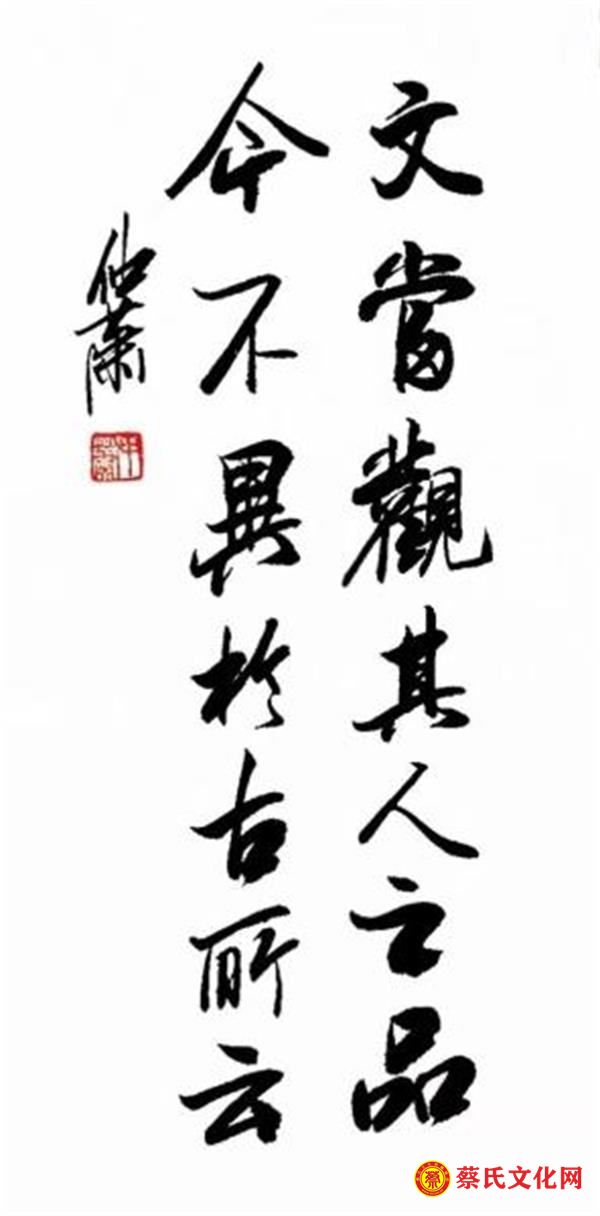 文當觀其人之品
今不異於古所云
蔡氏文化网